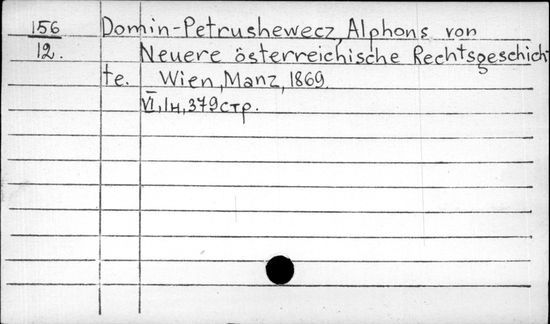 156 Domin-Petrushewecz, Alphons von
12. Neuere österreichische Rechtsgeschich
te. Wien, Manz, 1869.
VI, IH, 379 стр.